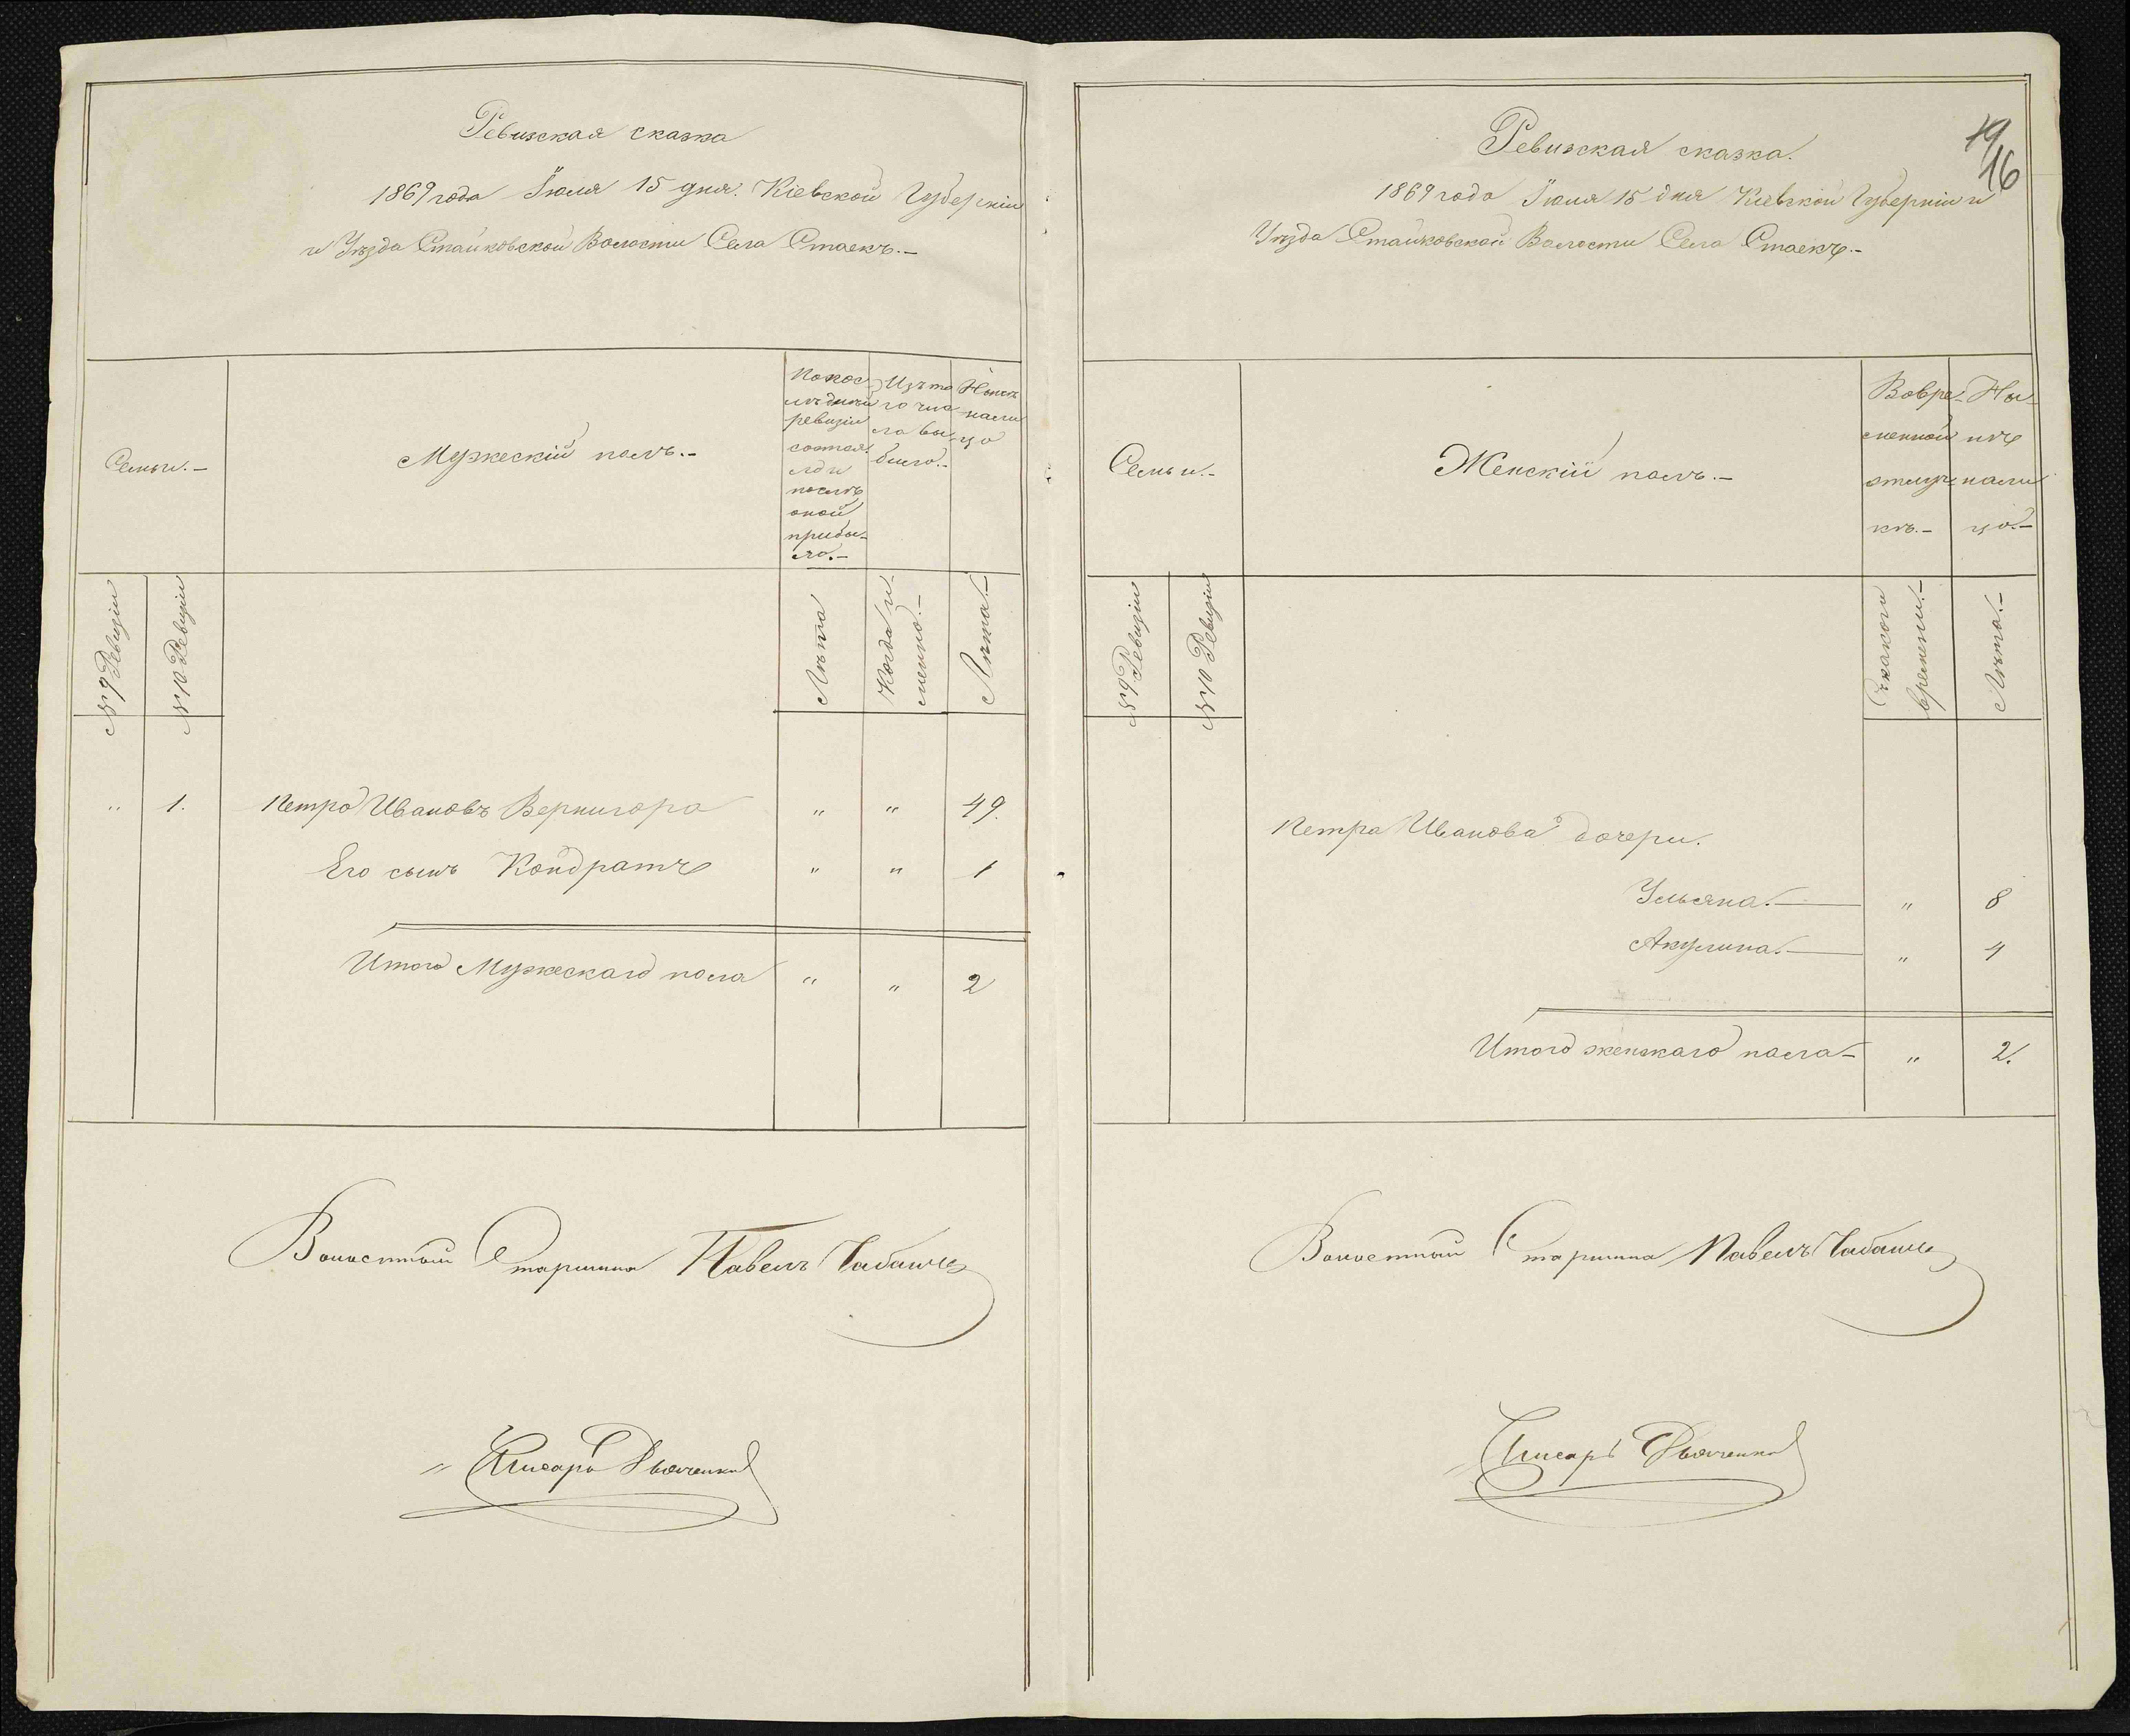 Ревизская сказка
1869 года Іюля 15 дня. Кіевской Губерніи
и Уѣзда Стайковской Волости Села Стаекъ.–
Семьи.–
Мужескій полъ.–
По пос-
лѣдней
ревизіи
состоя-
ло и
послѣ
оной
прибы-
ло.–
Изъ то
го чис
ла вы-
было.–
Нынѣ
нали
цо
№ 9 Ревизіи
№ 10 Ревизіи
Лѣта
Когда и-
менно.–
Лѣта.–
" 1. Петро Ивановъ Вернигора " " 49.
Его сынъ Кондратъ " " 1
Итого Мужескаго пола " " 2
Волостный Старшина Павелъ Чабанъ
Писарь Дьяченко
19
16
Ревизская сказка.
1869 года Іюля 15 дня Кіевской Губерніи и
Уѣзда Стайковской Волости Села Стаекъ.–
Семьи.–
Женскій полъ.–
Вовре-
менной
отлуч-
кѣ.–
Ны-
нѣ
нали
цо.–
№ 9 Ревизіи
№ 10 Ревизіи
Съ какого
времени.–
Лѣта.–
Петра Иванова дочери.
Ульяна.– " 8
Акулина.– " 4
Итого женскаго пола– " 2.
Волостный Старшина Павелъ Чабанъ
Писарь Дьяченко